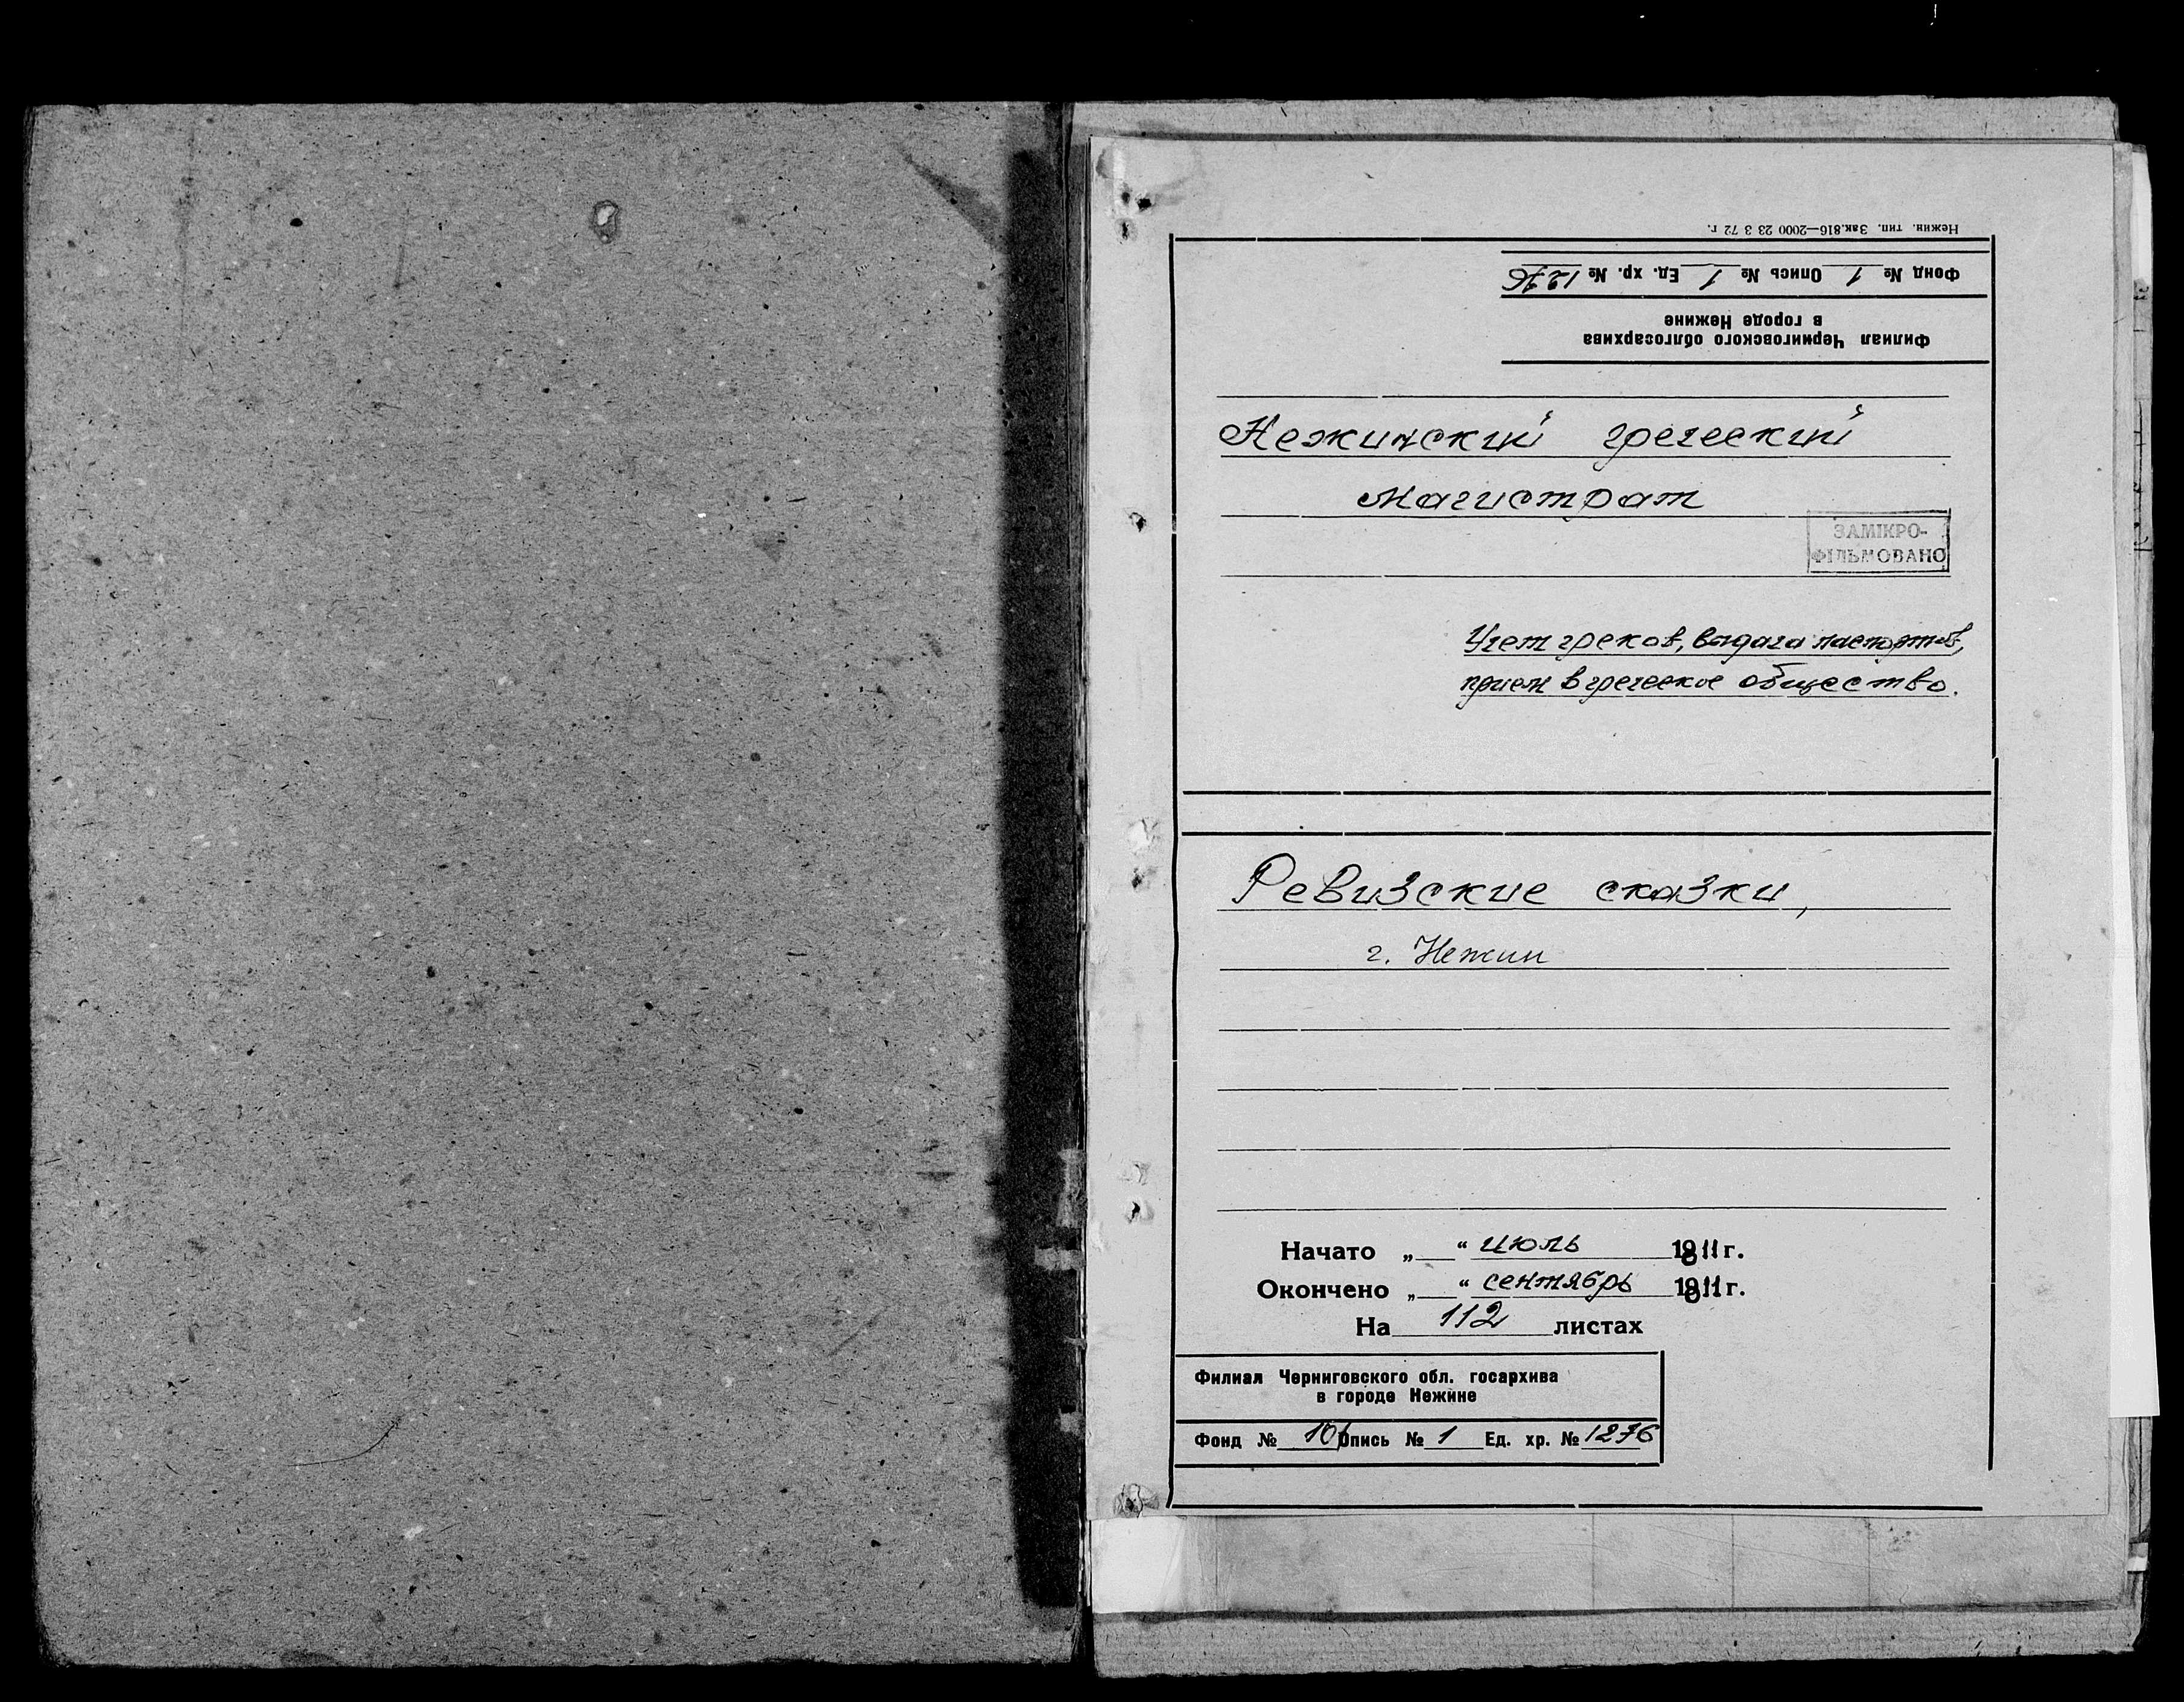 Нежин. тип. Зак.816—2000 23 3 72 г.
Фонд № 1 Опись № 1 Ед. хр. № 1276
Филиал Черниговского облгосархива
в городе Нежине
Нежинский греческий
магистрат
ЗАМІКРО-
ФІЛЬМОВАНО
Учет греков, выдача паспортов,
прием в греческое общество.
Ревизские сказки,
г. Нежин
Начато „ “ июль 1811 г.
Окончено „ “ сентябрь 1811 г.
На 112 листах
Филиал Черниговского обл. госархива
в городе Нежине
Фонд № 101 Опись № 1 Ед. хр. № 1276